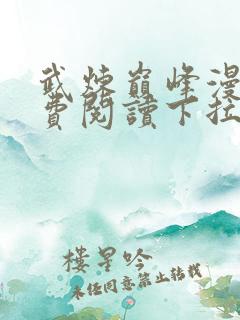 武炼巅峰漫
费閱讀下拉
樓星吟
未经同意禁止转载